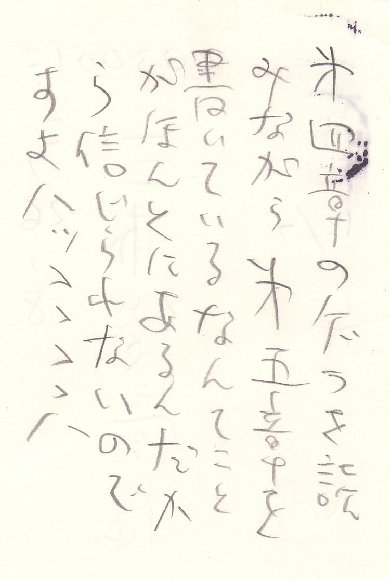 第四章のゲラを読
みながら 第五章を
書いているなんてこと
がほんとにあるんだか
ら信じられないので
すよハッヽヽヽヽハ